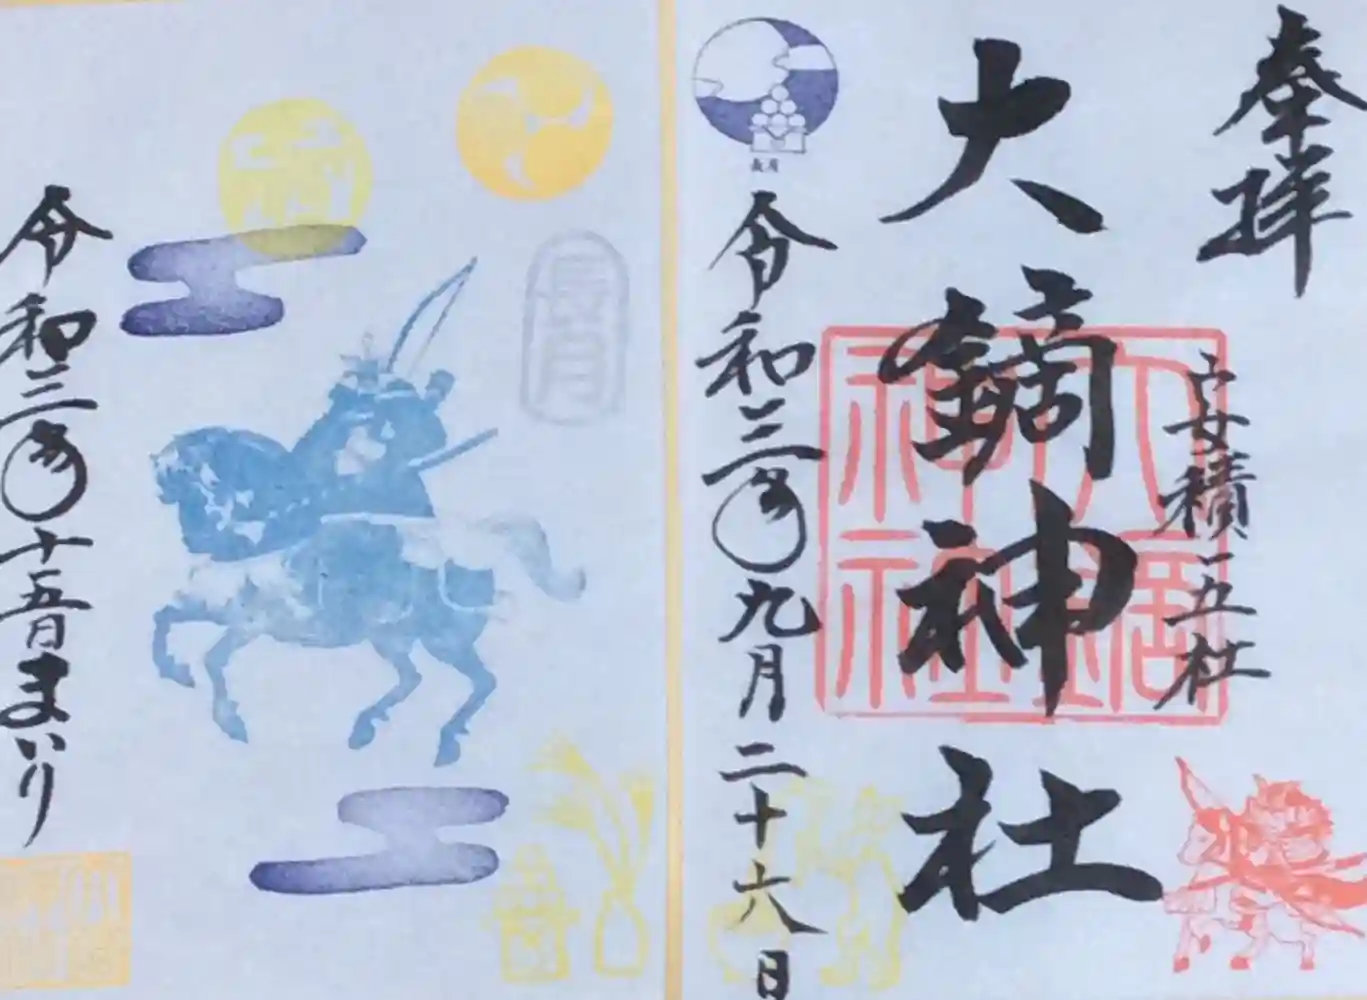 奉拝
安積五社
大鏑神社
大鏑神社
長月
令和三年九月二十六日
長月
令和三年十五日まいり